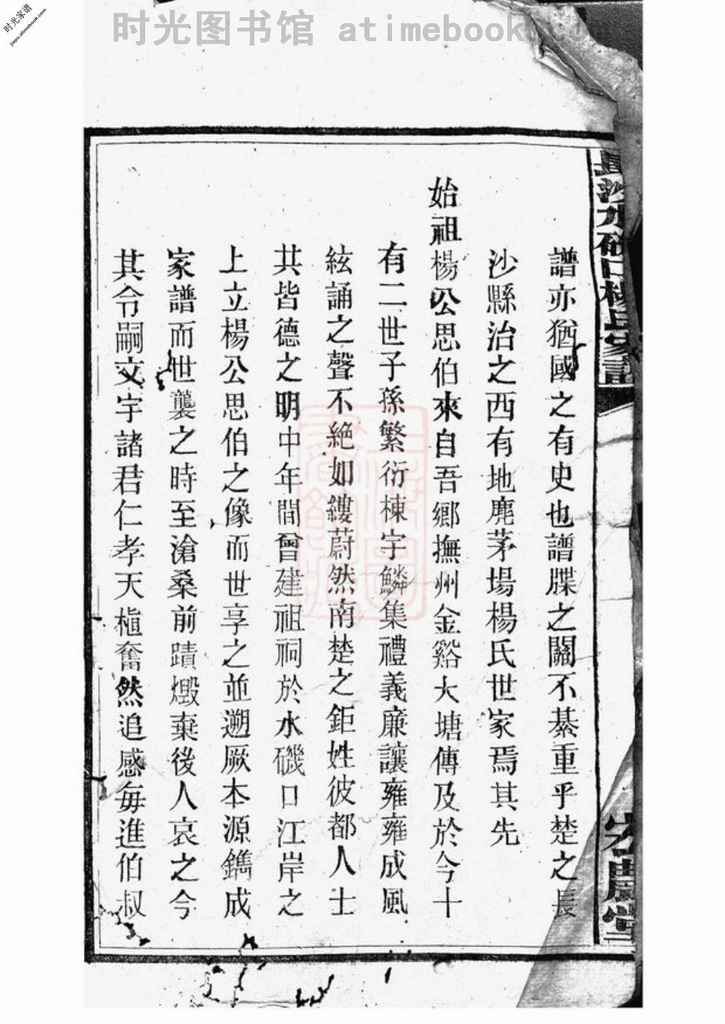 时光图书馆 atimebook.com
时光家谱
長沙水磯口楊氏家譜
宏農堂
譜亦猶國之有史也譜牒之關不綦重乎楚之長
沙縣治之西有地麂茅場楊氏世家焉其先
始祖楊公思伯來自吾鄉撫州金谿大塘傳及於今十
有二世子孫繁衍棟宇鱗集禮義廉讓雍雍成風
絃誦之聲不絕如縷蔚然南楚之鉅姓彼都人士
共皆德之明中年間曾建祖祠於水磯口江岸之
上立楊公思伯之像而世享之並遡厥本源鐫成
家譜而世襲之時至滄桑前蹟燬棄後人哀之今
其令嗣文宇諸君仁孝天植奮然追感每進伯叔